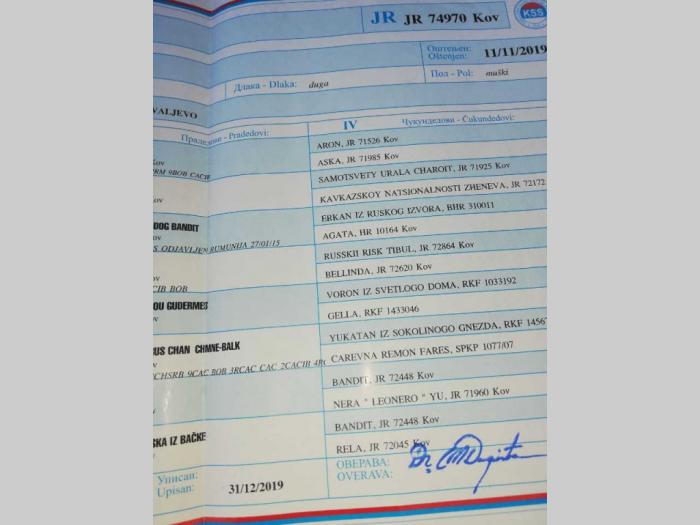 JR JR 74970 Kov
KSS
Оштењен:
Oštenjen: 11/11/2019
Длака - Dlaka: duga
Пол - Pol: muški
VALJEVO
Прадедови - Pradedovi:
IV Чукундедови - Čukundedovi:
ARON, JR 71526 Kov
ASKA, JR 71985 Kov
9BOB CACIB
SAMOTSVETY URALA CHAROIT, JR 71925 Kov
KAVKAZSKOY NATSIONALNOSTI ZHENEVA, JR 72172
ERKAN IZ RUSKOG IZVORA, BHR 310011
DOG BANDIT
AGATA, HR 10164 Kov
ODJAVLJEN RUMUNIJA 27/01/15
RUSSKII RISK TIBUL, JR 72864 Kov
BELLINDA, JR 72620 Kov
CIB BOB
VORON IZ SVETLOGO DOMA, RKF 1033192
OU GUDERMES
GELLA, RKF 1433046
YUKATAN IZ SOKOLINOGO GNEZDA, RKF 1456
US CHAN CHMNE-BALK
CHSRB 9CAC BOB 3RCAC CAC 2CACIB
CAREVNA REMON FARES, SPKP 1077/07
BANDIT, JR 72448 Kov
NERA " LEONERO " YU, JR 71960 Kov
BANDIT, JR 72448 Kov
SKA IZ BAČKE
RELA, JR 72045 Kov
Уписан:
Upisan: 31/12/2019
ОВЕРАВА:
OVERAVA: Dr